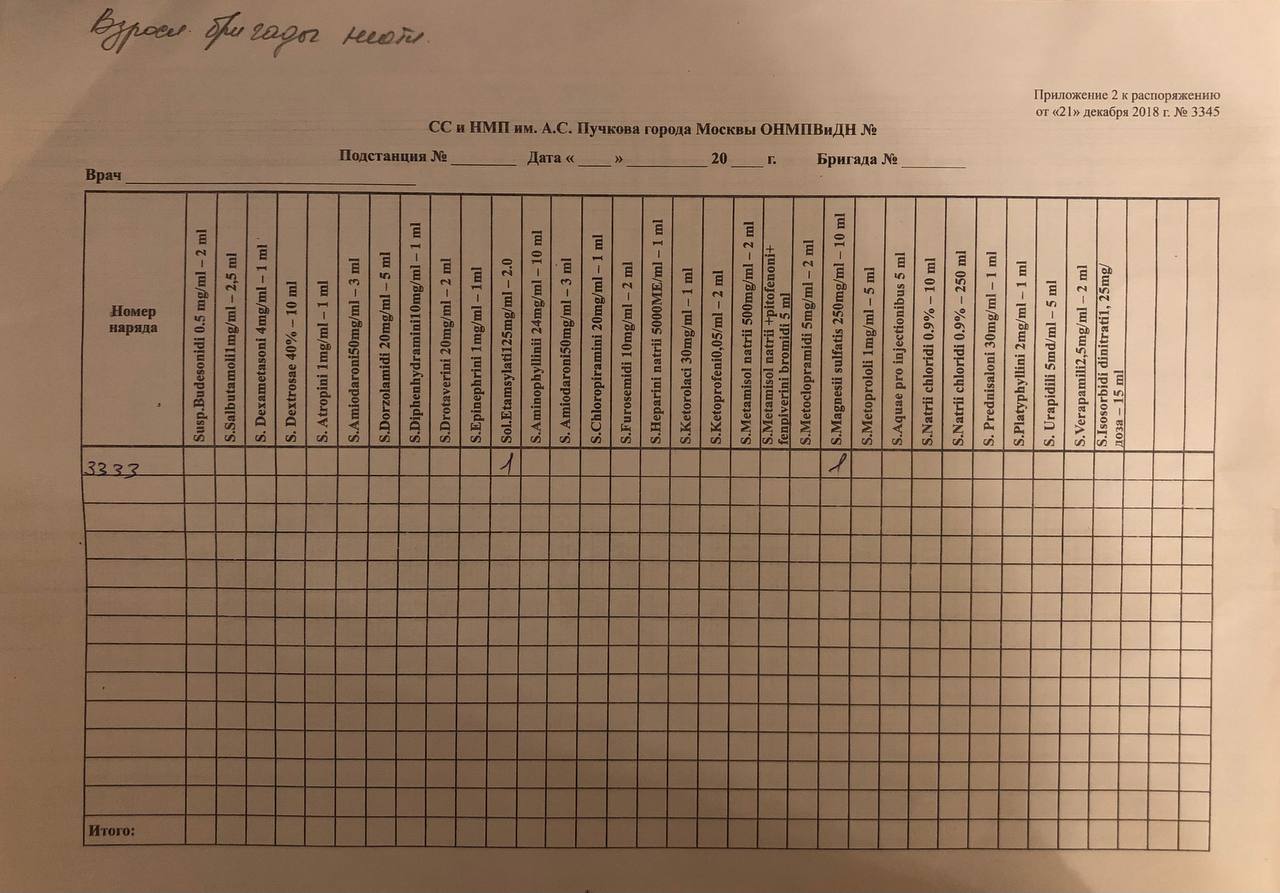 Взросл. бригады
Приложение 2 к распоряжению
от «21» декабря 2018 г. № 3345
СС и НМП им. А.С. Пучкова города Москвы ОНМПВиДН №
Подстанция № ________ Дата « ____ » __________ 20 ____ г. Бригада № ________
Врач ____________________________________
Номер
наряда
Susp.Budesonidi 0.5 mg/ml – 2 ml
S.Salbutamoli1mg/ml – 2,5 ml
S. Dexametasoni 4mg/ml – 1 ml
S. Dextrosae 40% – 10 ml
S. Atropini 1mg/ml – 1 ml
S.Amiodaroni50mg/ml – 3 ml
S.Dorzolamidi 20mg/ml – 5 ml
S.Diphenhydramini10mg/ml – 1 ml
S.Drotaverini 20mg/ml – 2 ml
S.Epinephrini 1mg/ml – 1ml
Sol.Etamsylati125mg/ml – 2.0
S.Aminophyllinii 24mg/ml – 10 ml
S. Amiodaroni50mg/ml – 3 ml
S.Chloropiramini 20mg/ml – 1 ml
S.Furosemidi 10mg/ml – 2 ml
S.Heparini natrii 5000ME/ml – 1 ml
S.Ketorolaci 30mg/ml – 1 ml
S.Ketoprofeni0,05/ml – 2 ml
S.Metamisol natrii 500mg/ml – 2 ml
S.Metamisol natrii +pitofenoni+
fenpiverini bromidi 5 ml
S.Metoclopramidi 5mg/ml – 2 ml
S.Magnesii sulfatis 250mg/ml – 10 ml
S.Metoprololi 1mg/ml – 5 ml
S.Aquae pro injectionibus 5 ml
S.Natrii chloridi 0.9% – 10 ml
S.Natrii chloridi 0.9% – 250 ml
S. Prednisaloni 30mg/ml – 1 ml
S.Platyphyllini 2mg/ml – 1 ml
S. Urapidili 5md/ml – 5 ml
S.Verapamili2,5mg/ml – 2 ml
S.Isosorbidi dinitrati1, 25mg/
доза – 15 ml
3333 1 1
Итого: